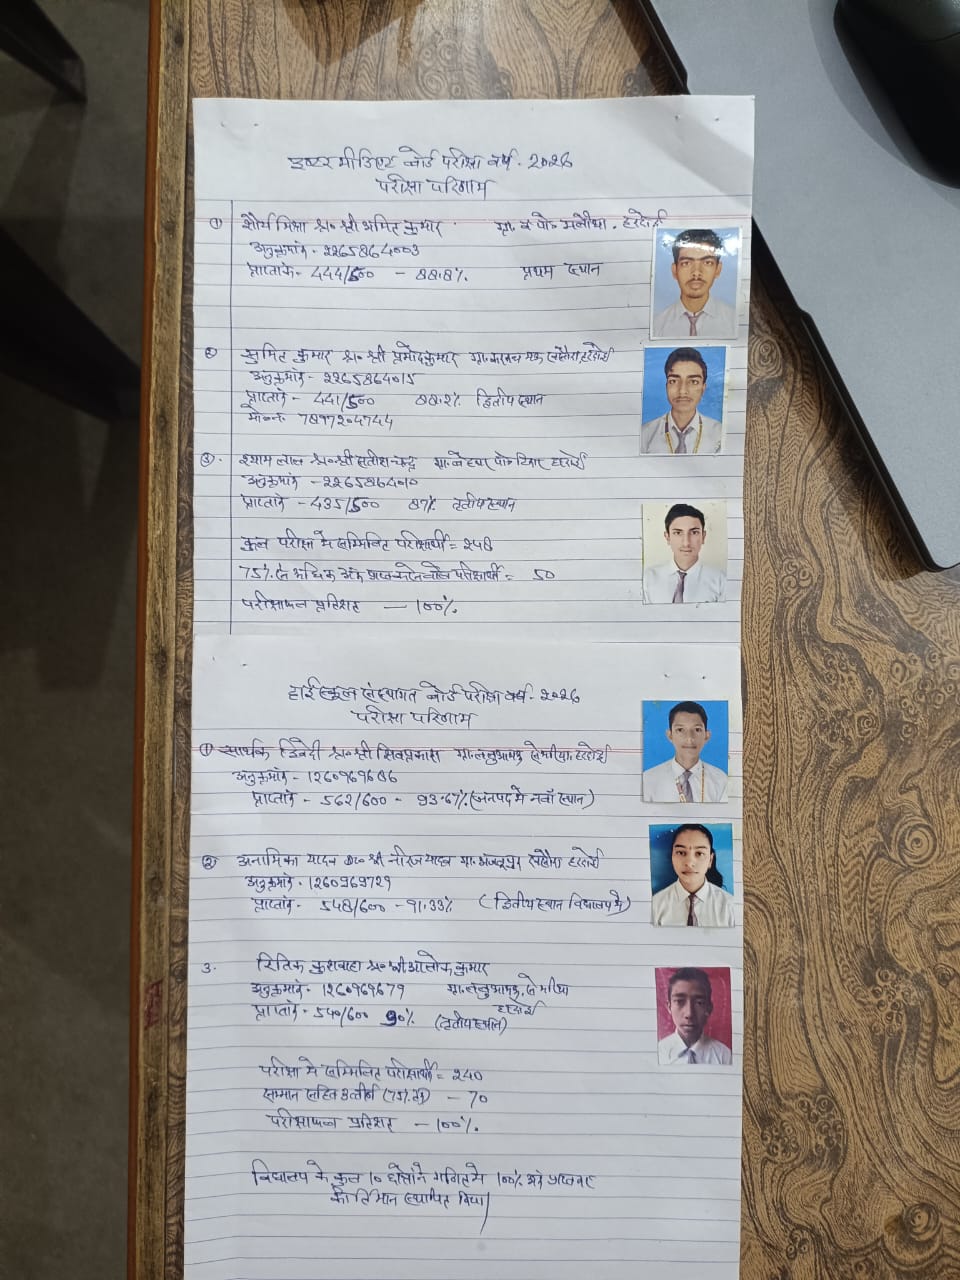 इण्टरमीडिएट बोर्ड परीक्षा वर्ष - 2026
परीक्षा परिणाम
① शौर्य मिश्रा S/o श्री अमित कुमार ग्रा. व पो० हरदोई
अनुक्रमांक - 2265864003
प्राप्तांक - 444/500 - 88.8% प्रथम स्थान
② सुमित कुमार S/o श्री प्रमोद कुमार हरदोई
अनुक्रमांक - 2265864015
प्राप्तांक - 441/500 88.2% द्वितीय स्थान
मो०नं० 7897204744
③ श्याम लाल S/o श्री सतीश चन्द्र ग्रा. पो० हरदोई
अनुक्रमांक - 2265864010
प्राप्तांक - 435/500 87% तृतीय स्थान
कुल परीक्षा में सम्मिलित परीक्षार्थी = 248
75% से अधिक अंक प्राप्त करने वाले परीक्षार्थी = 50
परीक्षाफल प्रतिशत — 100%
हाई स्कूल संस्थागत बोर्ड परीक्षा वर्ष - 2026
परीक्षा परिणाम
① सार्थक द्विवेदी S/o श्री शिवप्रकाश ग्रा. हरदोई
अनुक्रमांक - 1260969686
प्राप्तांक - 562/600 - 93.67% (जनपद में नवाँ स्थान)
② अनामिका यादव D/o श्री नीरज यादव ग्रा. हरदोई
अनुक्रमांक - 1260969729
प्राप्तांक - 548/600 - 91.33% (द्वितीय स्थान विद्यालय में)
3. रितिक कुशवाहा S/o श्री आलोक कुमार
अनुक्रमांक - 1260969679 ग्रा.
हरदोई
प्राप्तांक - 540/600 90% (तृतीय स्थान)
परीक्षा में सम्मिलित परीक्षार्थी = 240
सम्मान सहित उत्तीर्ण (75% से) - 70
परीक्षाफल प्रतिशत — 100%
विद्यालय के कुल 10 छात्रों ने गणित में 100% अंक प्राप्त कर
कीर्तिमान स्थापित किया|